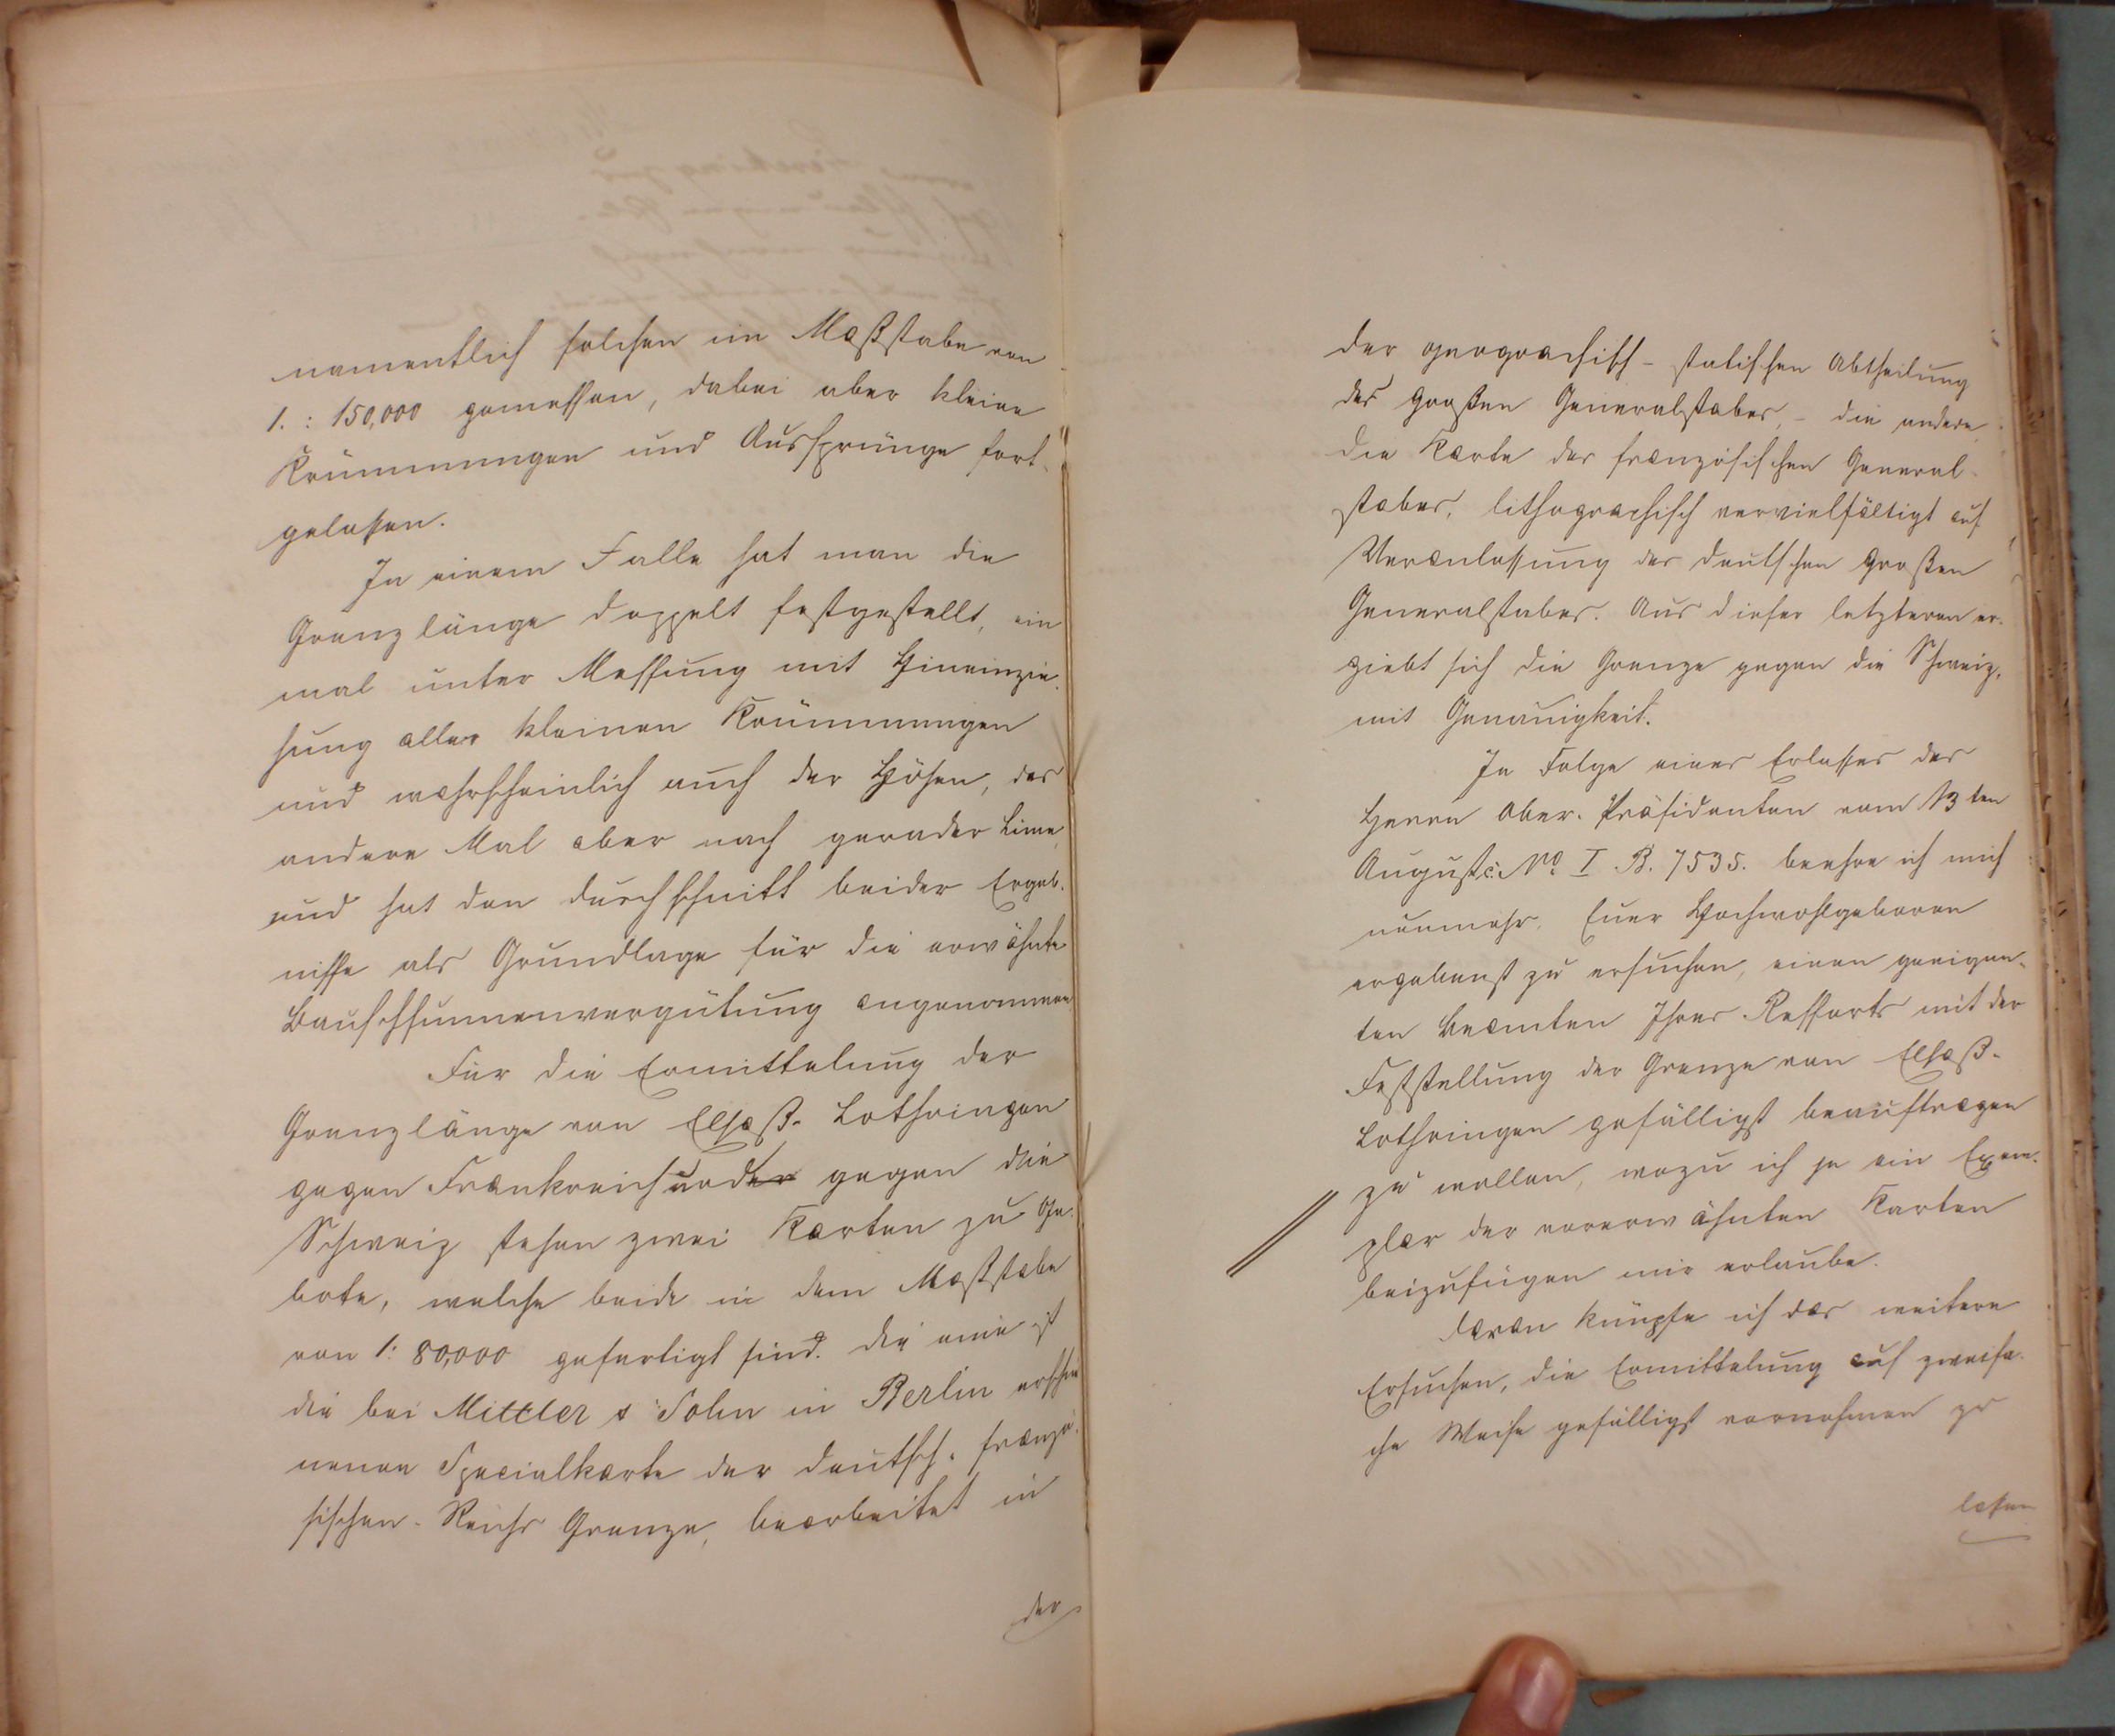 namentlich solchen im Maßstabe von
1. : 150,000 gemessen, dabei aber kleine
Krümmungen und Aussprünge fort-
gelassen.
In einem Falle hat man die
Grenzlänge doppelt festgestellt, ein
mal unter Messung mit Hineinzie-
hung aller kleinen Krümmungen
und wahrscheinlich auch der Höhen, das
andere Mal aber nach gerader Linie,
und hat den Durchschnitt beider Ergeb-
nisse als Grundlage für die erwähnte
Bauschsummenvergütung angenommen.
Für die Ermittelung der
Grenzlänge von Elsaß-Lothringen
gegen Frankreich und gegen die
Schweiz stehen zwei Karten zu Ge-
bote, welche beide in dem Maßstabe
von 1: 80,000 gefertigt sind. Die eine ist
die bei Mittler & Sohn in Berlin erschie
nenen Specialkarte der deutsch-franzö-
sischen-Reichs Grenze, bearbeitet in
der
der geograchisch-statischen Abtheilung
des großen Generalstabes, - die andere,
die Karte des französischen General-
stabes, lithograchisch vervielfältigt auf
Veranlassung des deutschen großen
Generalstabes. Aus dieser letzteren er-
giebt sich die Grenze gegen die Schweiz,
mit Genauigkeit.
In Folge eines Erlasses des
Herrn Ober-Präsidenten vom 13ten
August c. No I. B. 7535. beehre ich mich
nunmehr, Euer Hochwohlgeboren
ergebenst zu ersuchen, einen geeigne-
ten Beamten Ihres Ressorts mit der
Feststellung der Grenze von Elsaß-
Lothringen gefälligst beauftragen
zu wollen, wozu ich je ein Exem-
plar der vorerwähnten Karten
beizufügen mir erlaube.
Daran knüpfe ich das weitere
Ersuchen, die Ermittelung auf zweifa-
che Weise gefälligst vornehmen zu
lassen